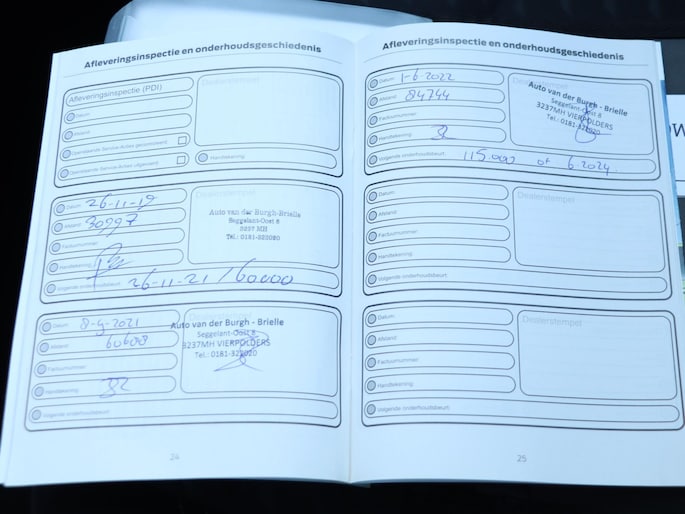 Afleveringsinspectie en onderhoudsgeschiedenis
Afleveringsinspectie (PDI)
Datum
Afstand
Openstaande Service-Acties gecontroleerd
Openstaande Service-Acties uitgevoerd
Dealerstempel
Handtekening
Datum 26-11-19
Afstand 30997
Factuurnummer
Handtekening
Volgende onderhoudsbeurt 26-11-21 / 60000
Dealerstempel
Auto van der Burgh-Brielle
Seggelant-Oost 8
3237 MH
Tel.: 0181-322020
Datum 8-4-2021
Afstand 60608
Factuurnummer
Handtekening
Volgende onderhoudsbeurt
Dealerstempel
Auto van der Burgh - Brielle
Seggelant-Oost 8
3237MH VIERPOLDERS
Tel.: 0181-322020
24
Afleveringsinspectie en onderhoudsgeschiedenis
Datum 1-6-2022
Afstand 84744
Factuurnummer
Handtekening
Volgende onderhoudsbeurt 115.000 of 6-2024.
Dealerstempel
Auto van der Burgh - Brielle
Seggelant-Oost 8
3237MH VIERPOLDERS
Tel.: 0181-322020
Datum
Afstand
Factuurnummer
Handtekening
Volgende onderhoudsbeurt
Dealerstempel
Datum
Afstand
Factuurnummer
Handtekening
Volgende onderhoudsbeurt
Dealerstempel
25